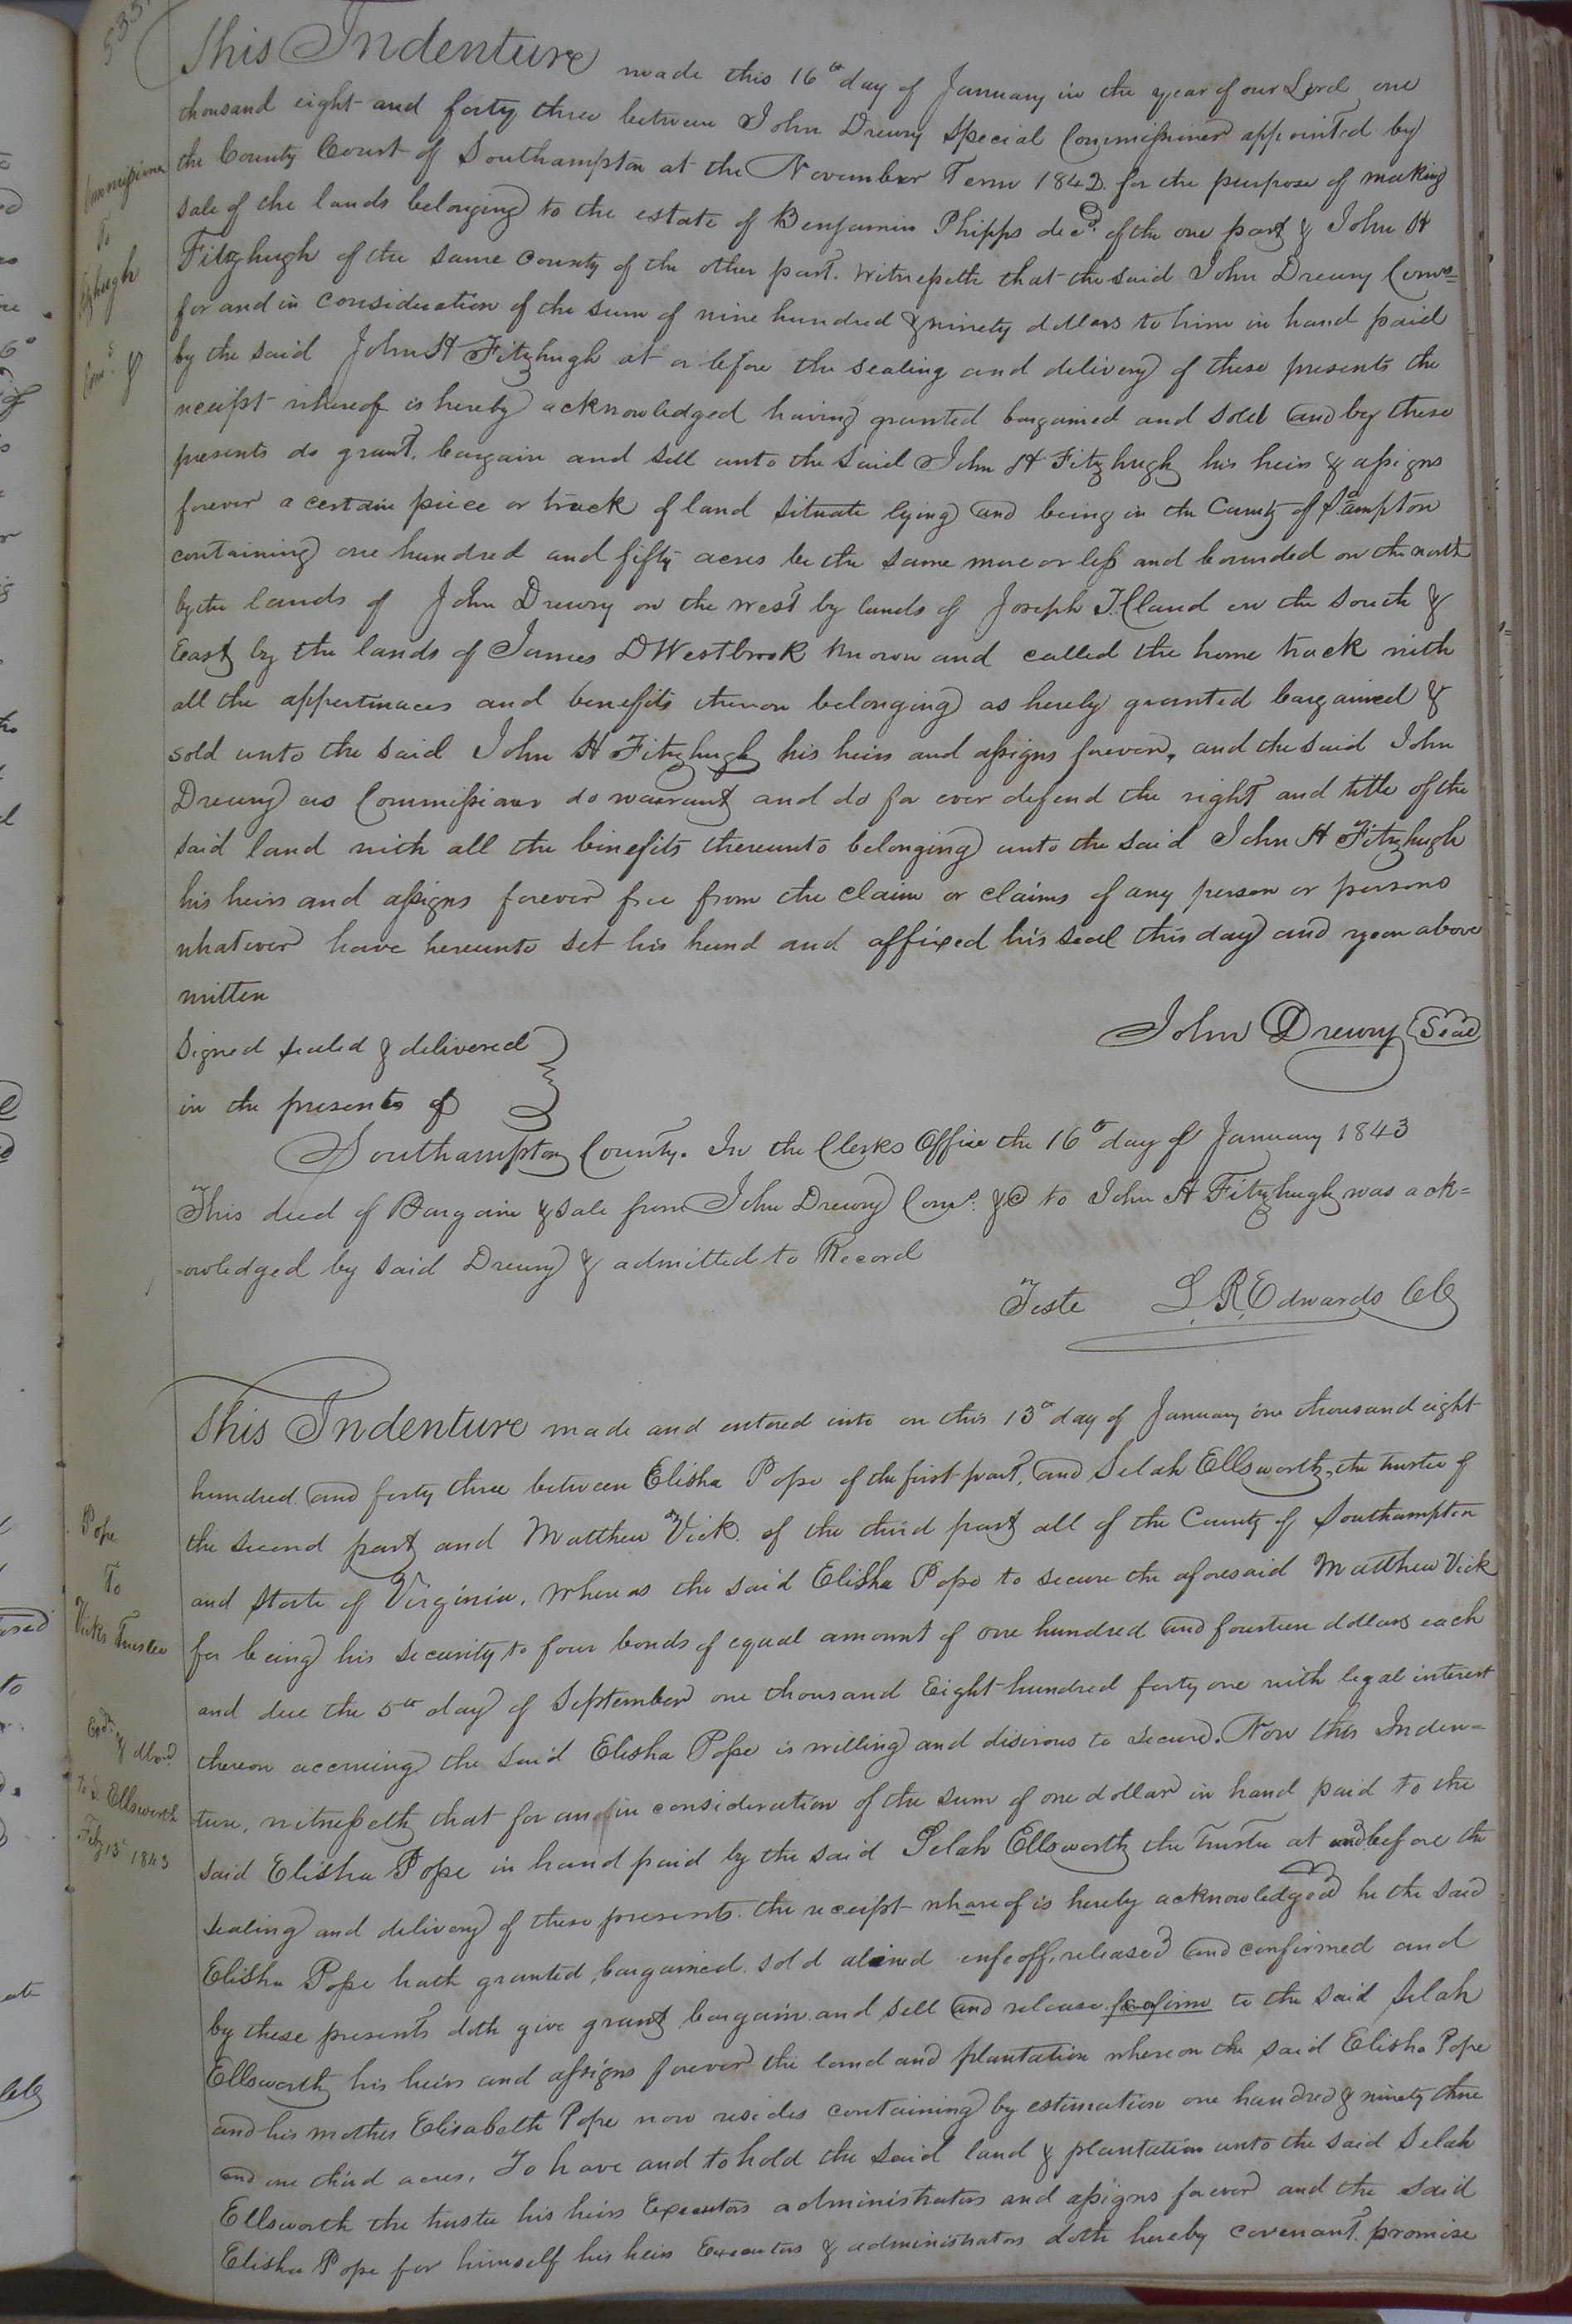 535
This Indenture made this 16th day of January in the year of our Lord one
thousand eight and forty three between John Drewry Special Commissioner appointed by
the County Court of Southampton at the November Term 1842 for the purpose of making
sale of the lands belonging to the estate of Benjamin Phipps decd. of the one part & John H
Fitzhugh of the same county of the other part. Witnesseth that the said John Drewry Comr=
for and in consideration of the sum of nine hundred & ninety dollars to him in hand paid
by the said John H Fitzhugh at or before the sealing and delivery of these presents the
receipt whereof is hereby acknowledged having granted bargained and sold and by these
presents do grant, bargain and sell unto the said John H Fitzhugh his heirs & assigns
forever a certain piece or track of land situate lying and being in the County of S.ampton
containing one hundred and fifty acres be the same more or less and bounded on the north
by the lands of John Drewry on the west by lands of Joseph T. Claud on the south &
East by the lands of James D Westbrook known and called the home track with
all the appertinaces and benefits thereon belonging as hereby granted bargained &
sold unto the said John H Fitzhugh his heirs and assigns forever, and the said John
Drewry as Commissioner do warrant and do for ever defend the right and title of the
said land with all the benefits thereunto belonging unto the said John H Fitzhugh
his heirs and assigns forever free from the claim or claims of any person or persons
whatever have hereunto set his hand and affixed his seal this day and year above
written
John Drewry Seal
Signed sealed & delivered
in the presents of
Southampton County. In the Clerks Office the 16th day of January 1843
This deed of Bargain & sale from John Drewry Comr. &c to John H Fitzhugh was ack=
=owledged by said Drewry & admitted to Record
Teste L. R. Edwards CC
This Indenture made and entered into on this 13th day of January one thousand eight
hundred and forty three between Elisha Pope of the first part, and Selah Ellsworth, the trustee of
the second part and Matthew Vick of the third part all of the County of Southampton
and State of Virginia, Whereas the said Elisha Pope to secure the aforesaid Matthew Vick
for being his security to four bonds of equal amount of one hundred and fourteen dollars each
and due the 5th day of September one thousand Eight hundred forty one with legal interest
thereon accruing the said Elisha Pope is willing and disirous to secure. Now this Inden=
ture, witnesseth that for and in consideration of the sum of one dollar in hand paid to the
said Elisha Pope in hand paid by the said Selah Ellsworth the Trustee at and before the
sealing and delivery of these presents. the receipt whareof is hereby acknowledged he the said
Elisha Pope hath granted, bargained. sold aliened enfeoff, released and confirmed and
by these presents doth give grant bargain and sell and release to the said Selah
Ellsworth his heirs and assigns forever the land and plantation whereon the said Elisha Pope
and his mother Elisabeth Pope now resides containing by estimation one handred & ninety three
and one third acres, To have and to hold the said land & plantation unto the said Selah
Ellsworth the trustee his heirs Executors administrators and assigns forever and the said
Elisha Pope for himself his heirs Executors & administrators doth hereby covenant, promise
Commissioner
To
Fitzhugh
Pope
To
Vicks Trustee
Exd. & dlvd.
to S. Ellsworth
Feby 13th 1843